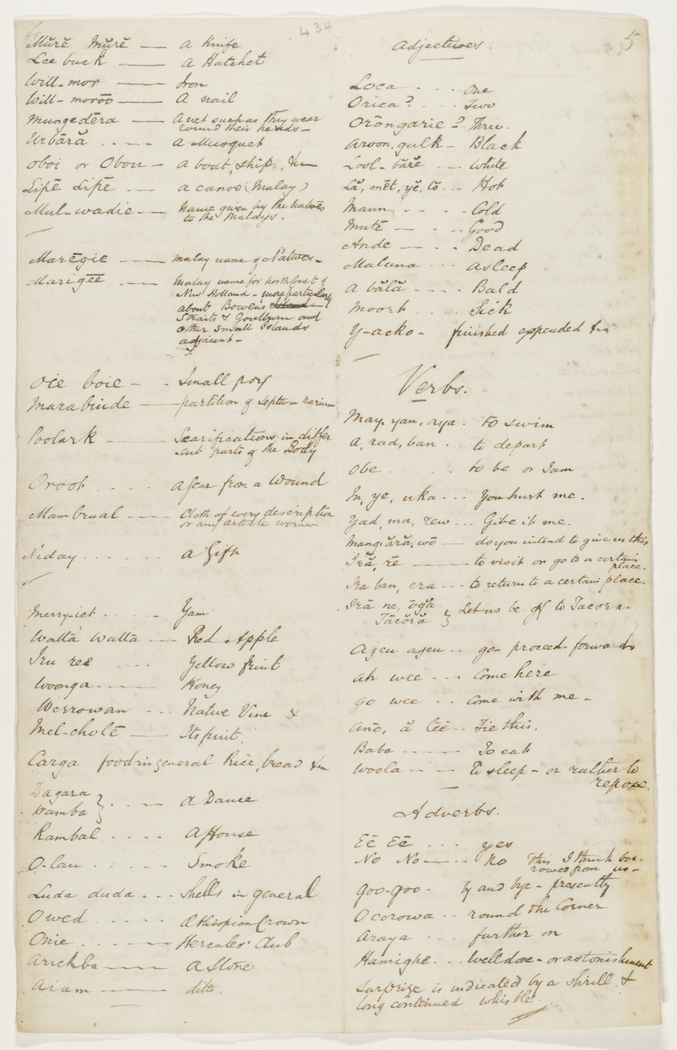 434
5
Mŭrĕ Mŭrĕ — a Knife
Lee buck — a Hatchet
Will-mor — Iron
Will-morōō — A nail
Mungedēra — A net such as they wear
round their heads —
Urbără .... — a Musquet
Oboi or Obou — a boat, ship, &c
Lĭpĕ Lĭpĕ — a canoe (Malay)
Mul-wadie — Name given by the natives
to the Malays.
Marēgie — malay name of Natives —
Marigēē — Malay name for north Coast of
New Holland — more particularly
about Bowens
Straits & Goulburn and
other small Islands
adjacent —
Oie boie — Small pox
Marabinde — partition of Septum narium
Poolark — Scarifications in differ
-ent parts of the Body
Oroot .... a scar from a Wound
Mambrual — Cloth of every description
or any article worn
Niday ...... a Gift
Merryiet ..... Yam
Watta Watta — Red Apple
Iru ree .... Yellow fruit
Woonga — Honey
Werrowan — Native Vine &
Mel-cholē — Its fruit
Carga food in general Rice, bread &c
Dagara
Wamba } — A Dance
Rambal .... A House
O-lan .... Smoke
Luda duda ... Shells in general
Owed .... Ethiopian Crown
Onie .... Hercules' Club
Arickba — A Stone
Aram — ditto
Adjectives.
Loca .... One
Orica? .... Two
Orōngarie? Three.
Aroon, gulk — Black
Lool-băre — White
Lă, mĕt, yĕ, tō .. Hot
Maun .... Cold
Mutē — — Good
Ande — . — Dead
Maluna .. Asleep
A bălă — — Bald
Moort .... Sick
Y-acko — finished expended &c
Verbs.
May, yan, aya .. to swim
A, rad, ban .. to depart
Obe ...... to be or I am
In, ye, uka ... You hurt me.
Yad, ma, rew .. Give it me.
Mangără, wō — do you intend to give us this
Iră, rē — to visit or go to a certain
place.
Ira ban, era — to return to a certain place.
Iră ne, ōgă
Tăcōră } Let us be off to Tacora.
Ajeu ajeu .. go proceed forwards
ah wee ... Come here
go wee ... Come with me —
Anō, ă lēē .. Tie this.
Baba ...... To eat
Woola — To sleep — or rather to
repose.
Adverbs.
Eē Eē ... yes
No No — .. No This I think bor-
rowed from us —
goo-goo — by and bye — presently
Ocorowa .. round the Corner
Araya ... further on
Hamighe .. well done — or astonishment
Surprize is indicated by a shrill &
long continued whistle.